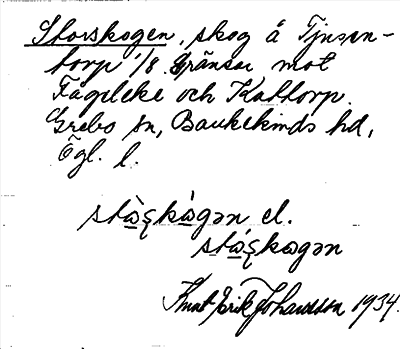 Storskogen, skog å Tjusen-
torp 1/8. Gränsar mot
Fågeleke och Kattorp.
Grebo sn, Bankekinds hd,
Ögl. l.
stɷ̀ʂkɷ̀gən el.
stɷ́ʂkɷgən
Knut Erik Johansson 1934.